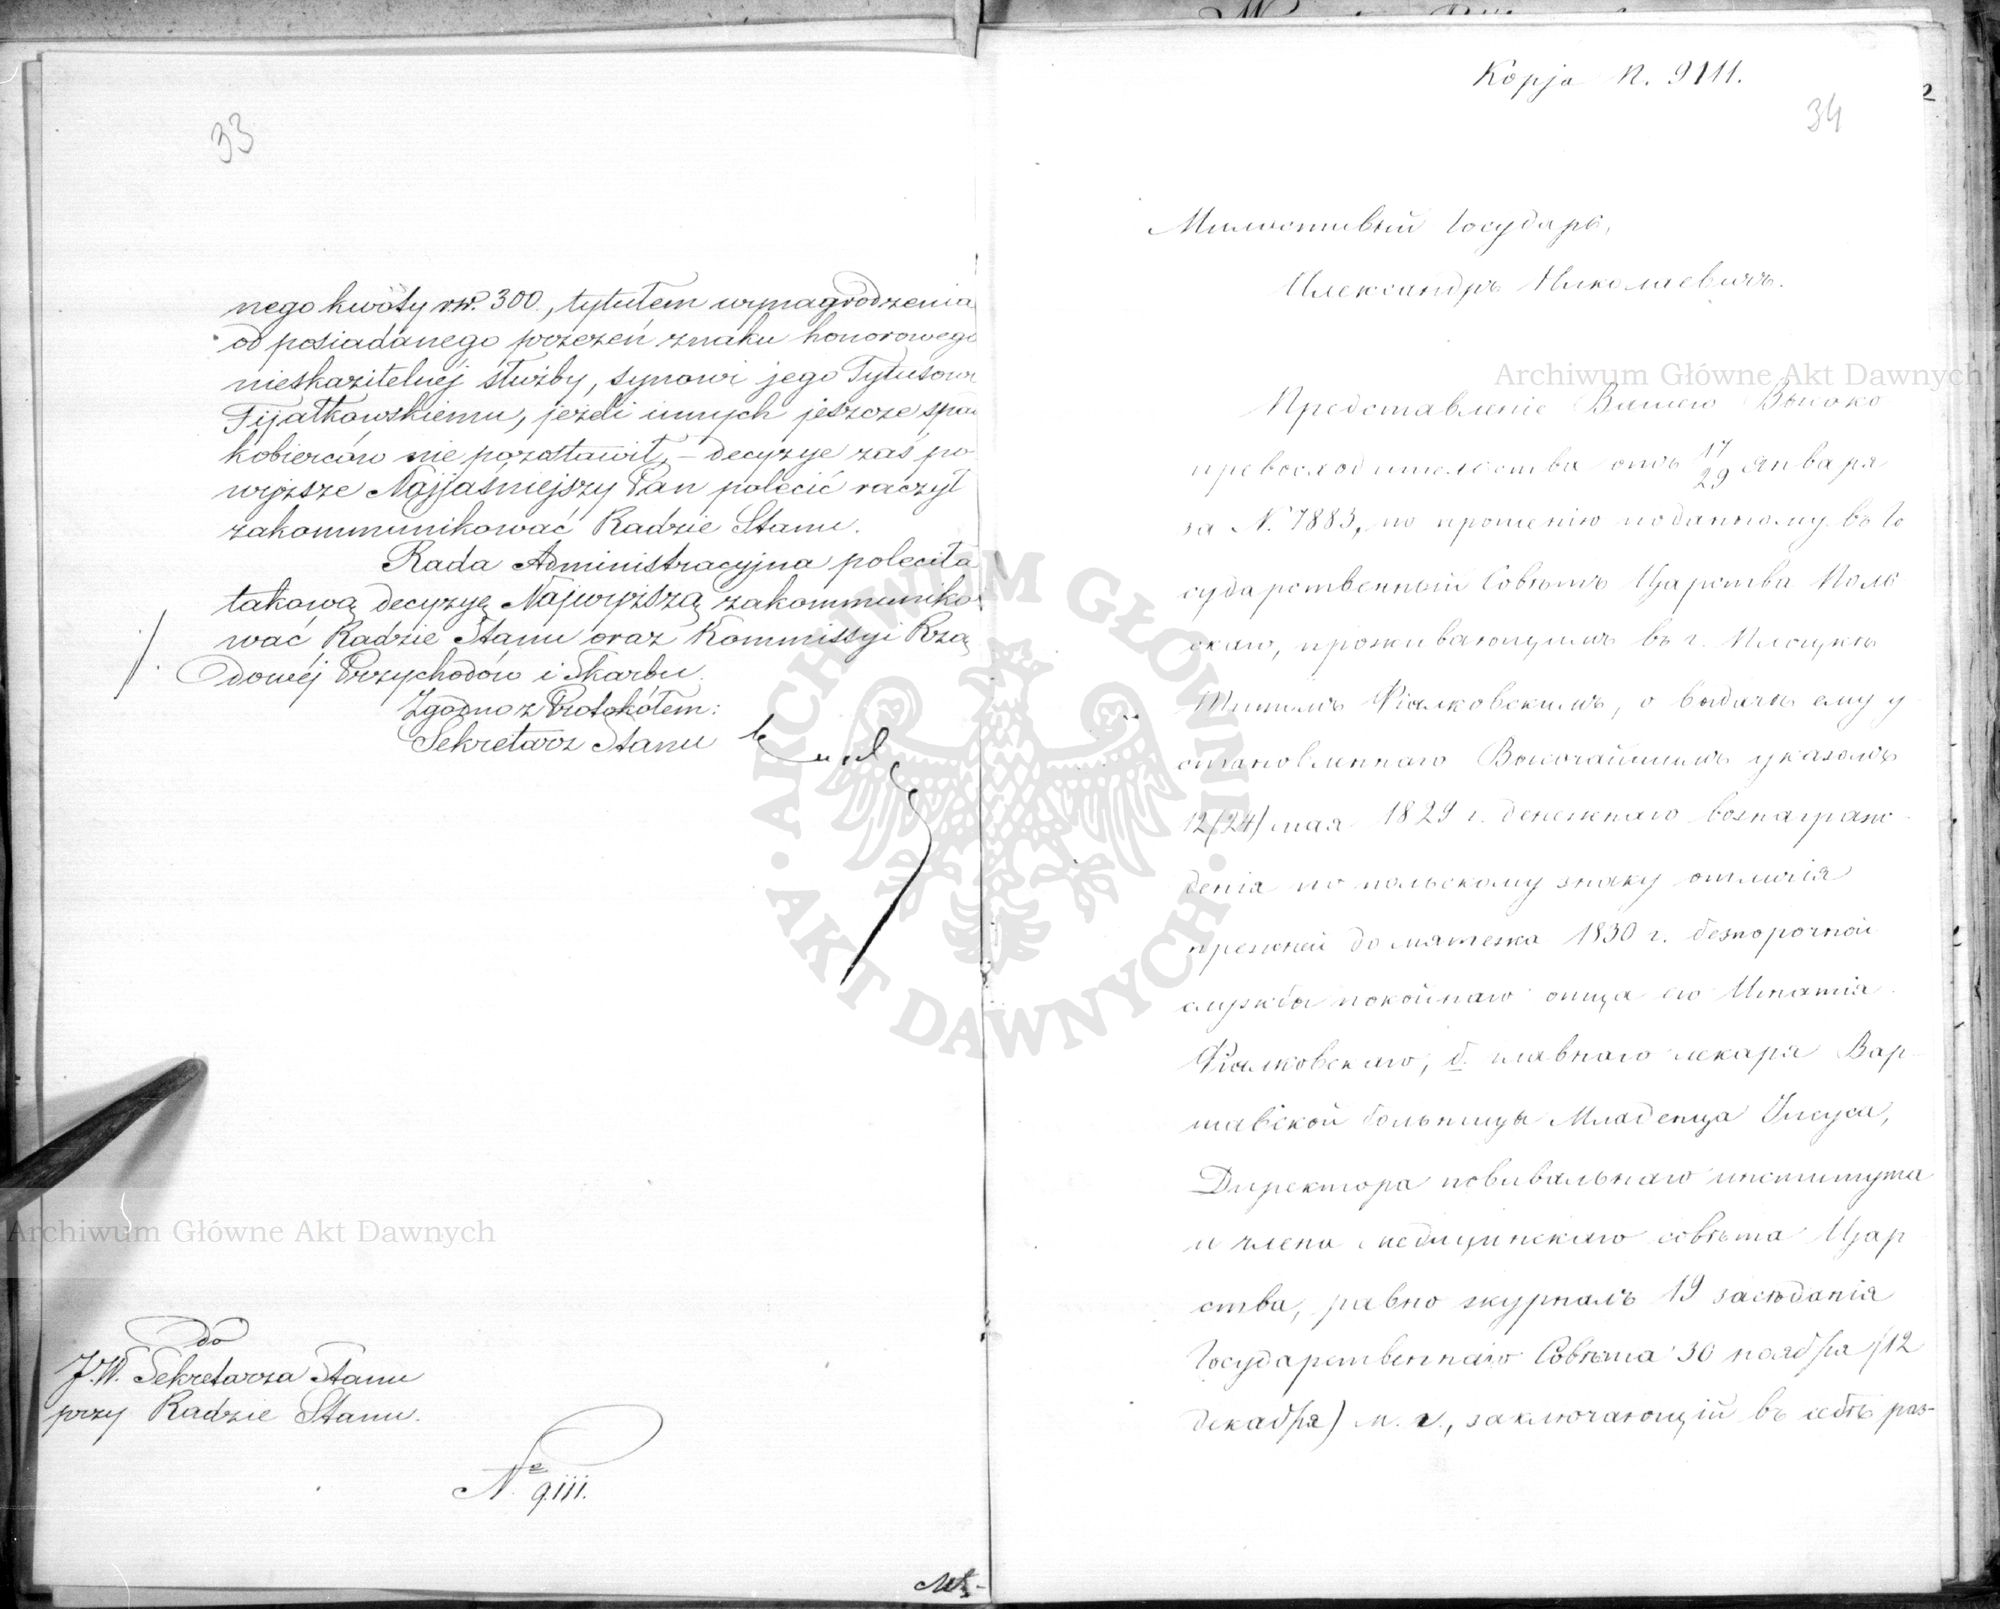 33
nego kwoty rsr. 300, tytułem wynagrodzenia
od posiadanego przezeń znaku honorowego
nieskazitelnéj służby, synowi jego Tytusowi
Fijałkowskiemu, jeżeli innych jeszcze spad
kobierców nie pozostawił, – decyzye zaś po
wyższe Najjaśniejszy Pan polecić raczył
zakommunikować Radzie Stanu.
Rada Administracyjna poleciła
takową decyzyę Najwyższą zakommuniko
wać Radzie Stanu oraz Kommissyi Rzą
dowéj Przychodów i Skarbu.
Zgodno z Protokółem:
Sekretarz Stanu
do
J.W. Sekretarza Stanu
przy Radzie Stanu.
No 9111.
Kopja N. 9111.
34
Милостивый Государь,
Александръ Николаевичъ.
Представленіе Вашего Высоко
превосходительства отъ 17/29 Января
за N. 7883, по прошенію поданному въ Го
сударственный Совѣтъ Царства Поль
скаго, проживающимъ въ г. Плоцкѣ
Титомъ Фіалковскимъ, о выдачѣ ему у
становленнаго Высочайшимъ указомъ
12/24/ мая 1829 г. денежнаго вознаграж-
денія по польскому знаку отличія
прежней до мятежа 1830 г. безпорочной
службы покойнаго отца его Игнатія
Фіалковскаго, б. главнаго лекаря Вар-
шавской больницы Младенца Іисуса,
Директора повивальнаго института
и члена медицинскаго совѣта Цар
ства, равно журналъ 19 засѣданія
Государственнаго Совѣта 30 ноября /12
декабря) м. г., заключающій въ себѣ раз-
Archiwum Główne Akt Dawnych
Archiwum Główne Akt Dawnych
· ARCHIWUM GŁÓWNE · AKT DAWNYCH